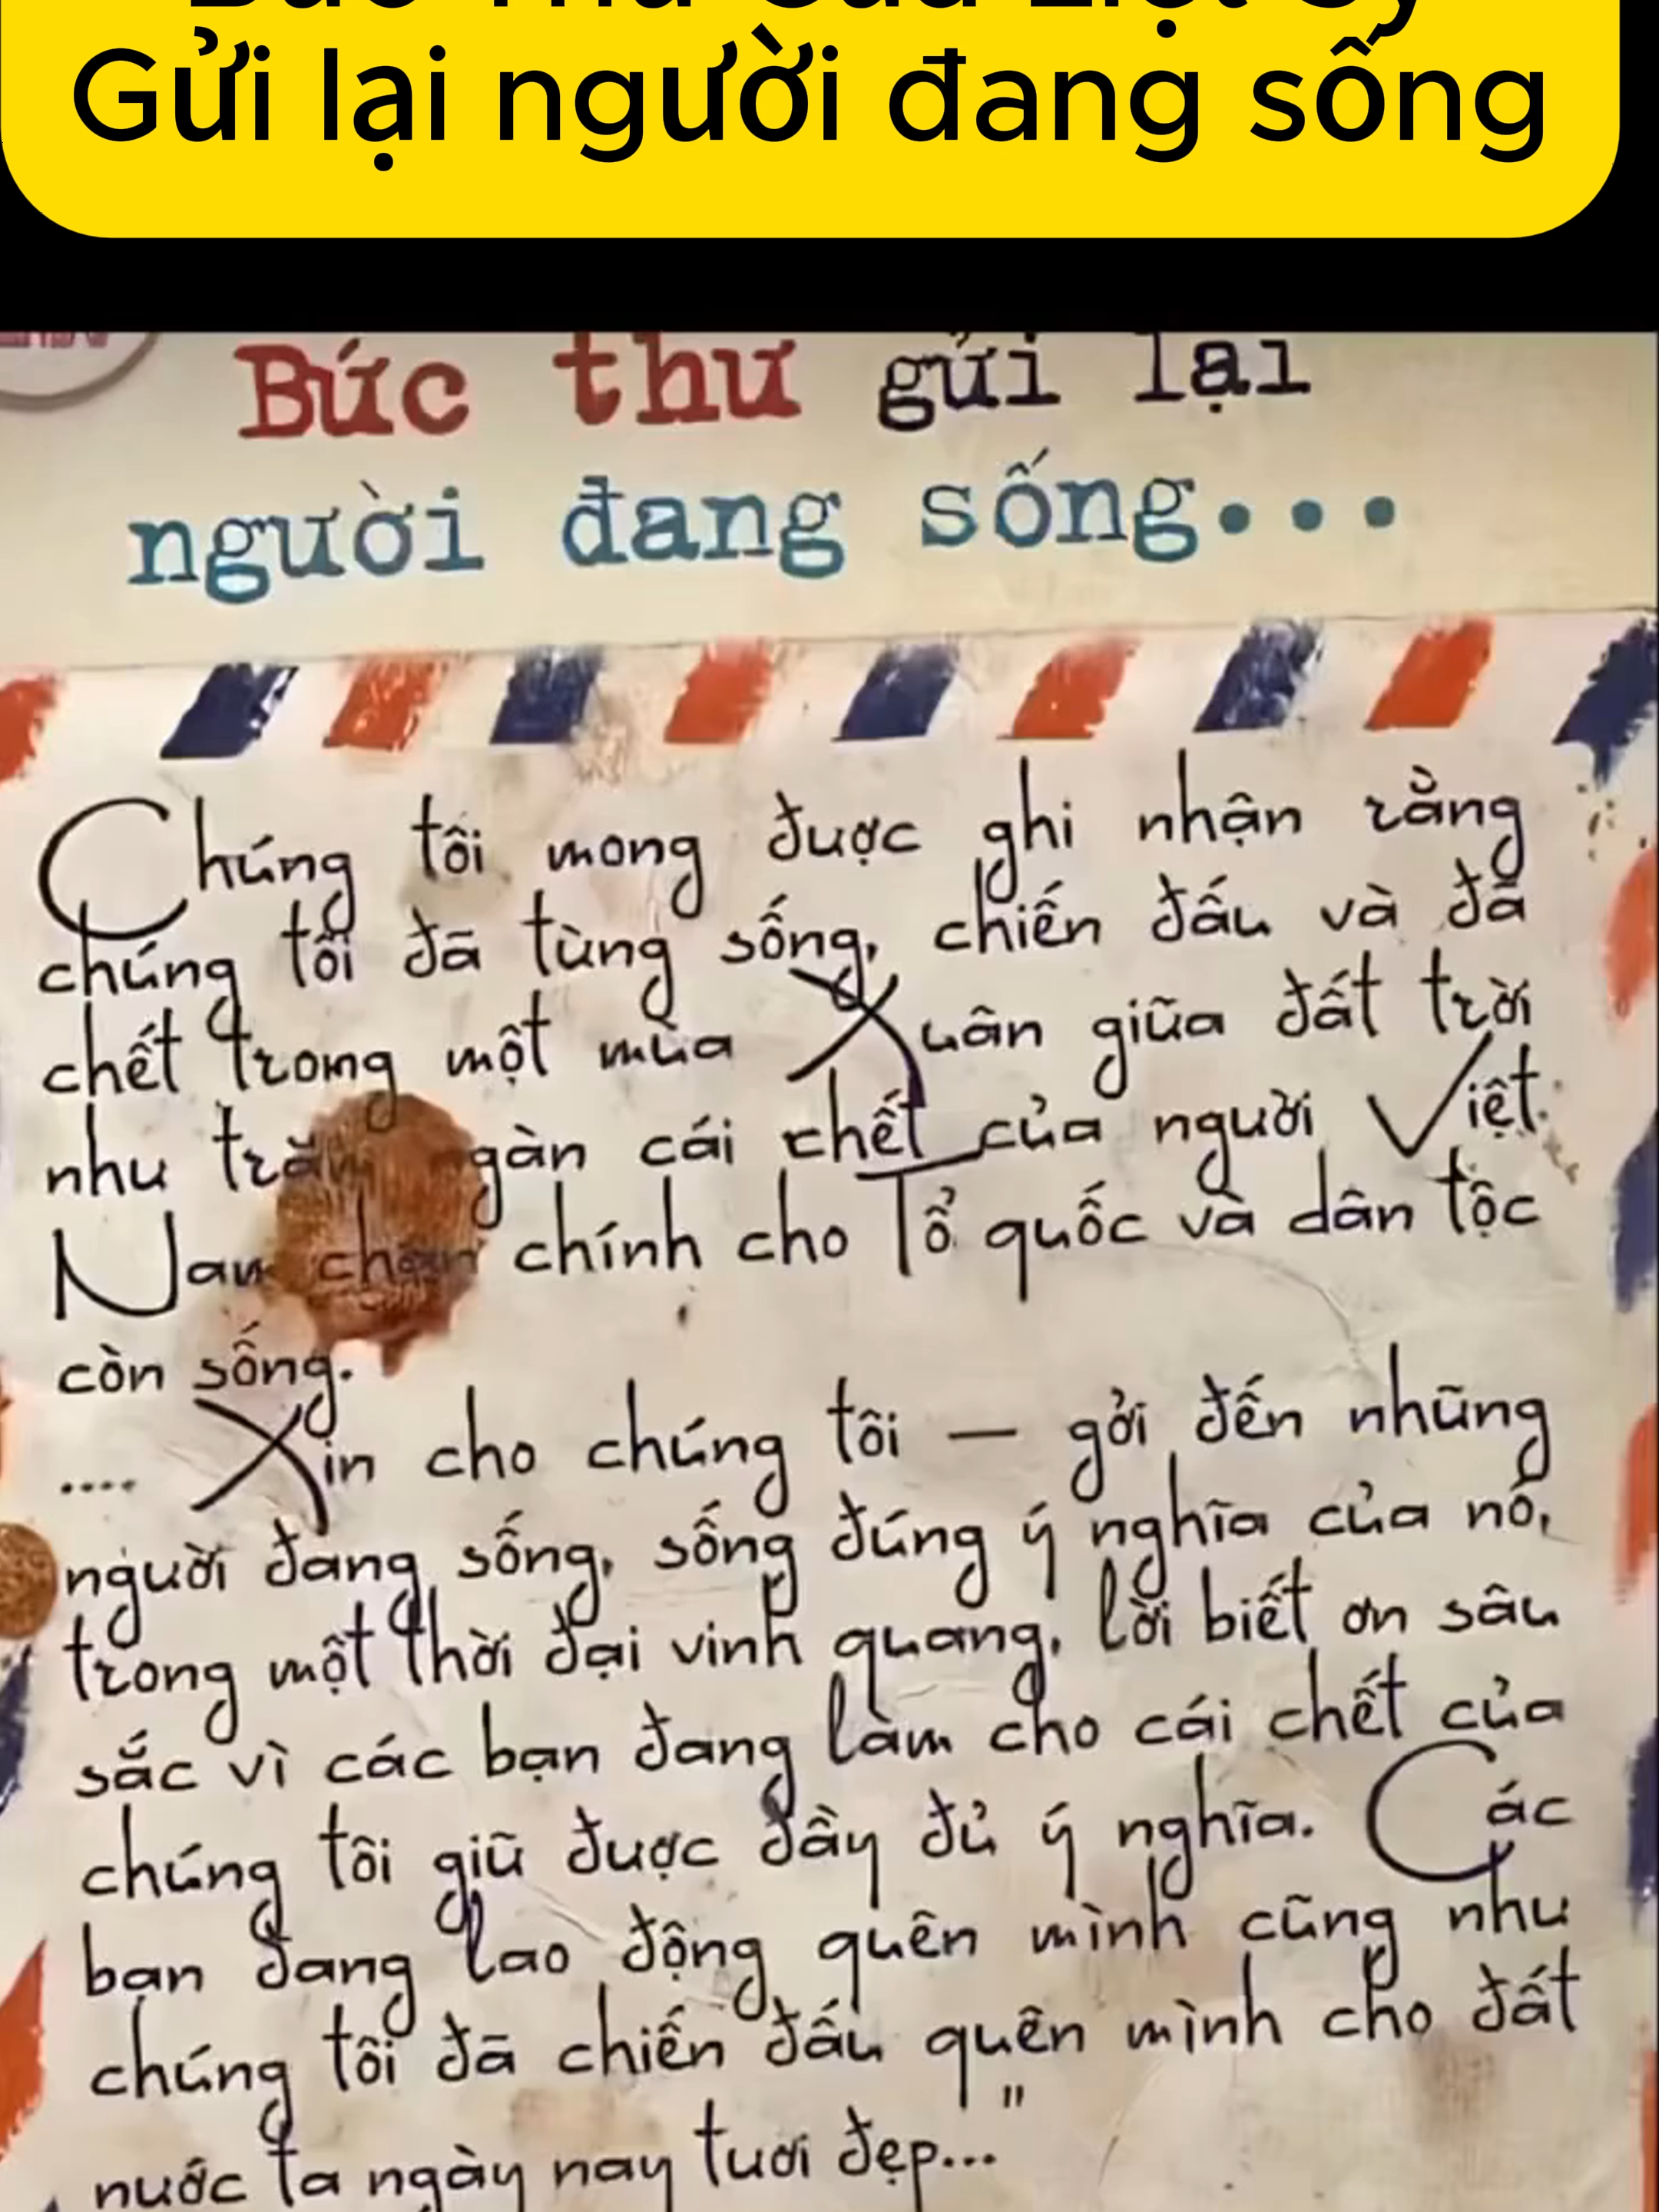 Bức Thư Của Liệt Sỹ
Gửi lại người đang sống
Bức thư gửi lại
người đang sống...
Chúng tôi mong được ghi nhận rằng
chúng tôi đã từng sống, chiến đấu và đã
chết trong một mùa Xuân giữa đất trời
như trăm ngàn cái chết của người Việt
Nam chân chính cho Tổ quốc và dân tộc
còn sống.
.... Xin cho chúng tôi – gởi đến những
người đang sống, sống đúng ý nghĩa của nó,
trong một thời đại vinh quang, lời biết ơn sâu
sắc vì các bạn đang làm cho cái chết của
chúng tôi giữ được đầy đủ ý nghĩa. Các
bạn đang lao động quên mình cũng như
chúng tôi đã chiến đấu quên mình cho đất
nước ta ngày nay tươi đẹp..."